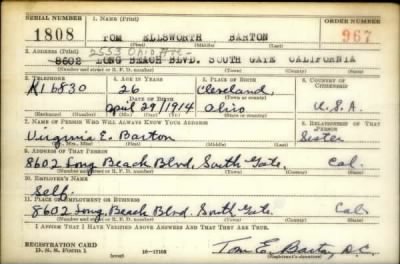 SERIAL NUMBER 1. NAME (Print) ORDER NUMBER
1808 TOM ELLSWORTH BARTON 967
(First) (Middle) (Last)
2. ADDRESS (Print) 2553 Ohio Ave
8602 LONG BEACH BLVD. SOUTH GATE CALIFORNIA
(Number and street or R. F. D. number) (Town) (County) (State)
3. TELEPHONE 4. AGE IN YEARS 5. PLACE OF BIRTH 6. COUNTRY OF CITIZENSHIP
KI 6830 26 Cleveland,
DATE OF BIRTH (Town or county)
April 29, 1914 Ohio U.S.A.
(Exchange) (Number) (Mo.) (Day) (Yr.) (State or country)
7. NAME OF PERSON WHO WILL ALWAYS KNOW YOUR ADDRESS 8. RELATIONSHIP OF THAT PERSON
Virginia E. Barton Sister
(Mr., Mrs., Miss) (First) (Middle) (Last)
9. ADDRESS OF THAT PERSON
8602 Long Beach Blvd, South Gate, Cal.
(Number and street or R. F. D. number) (Town) (County) (State)
10. EMPLOYER'S NAME
Self.
11. PLACE OF EMPLOYMENT OR BUSINESS
8602 Long Beach Blvd. South Gate Cal
(Number and street or R. F. D. number) (Town) (County) (State)
I AFFIRM THAT I HAVE VERIFIED ABOVE ANSWERS AND THAT THEY ARE TRUE.
REGISTRATION CARD
D. S. S. Form 1 16—17105 Tom E. Barton, D.C.
(over) (Registrant's signature)